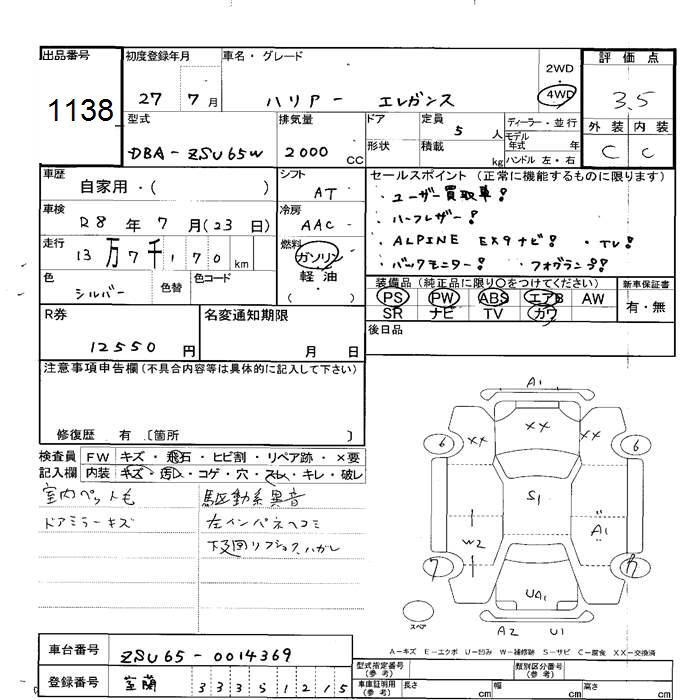 出品番号
1138
初度登録年月
27 7月
車名・グレード
ハリアー エレガンス
2WD
・
4WD
評価点
3.5
外装 内装
C C
型式
DBA-ZSU65W
排気量
2000 CC
ドア
形状
定員 5 人
積載 kg
ディーラー・並行
モデル
年式 年
ハンドル 左・右
車歴
自家用・( )
シフト
AT
車検
R8年 7月(23日)
冷房
AAC
走行
13万7千170km
燃料
ガソリン
軽油
( )
色
シルバー
色替
色コード
セールスポイント(正常に機能するものに限ります)
・ユーザー買取車!
・ハーフレザー!
・ALPINE EX9ナビ! ・TV!
・バックモニター! ・フォグランプ!
装備品(純正品に限り○をつけてください)
PS PW ABS エアB AW
SR ナビ TV カワ
新車保証書
有・無
後日品
R券
12550円
名変通知期限
月 日
注意事項申告欄(不具合内容等は具体的に記入して下さい)
修復歴 有 〔箇所 〕
検査員
記入欄
FW キズ・飛石・ヒビ割・リペア跡・×要
内装 キズ・汚レ・コゲ・穴・スレ・キレ・破レ
室内ペット毛
ドアミラーキズ
駆動系異音
左インパネヘコミ
下回リ
ハガレ
A1
XX
XX
XX
6
6
S1
W2
A1
7
7
UA1
スペア
A2 U1
A-キズ E-エクボ U-凹み W-補修跡 S-サビ C-腐食 XX-交換済
車台番号
ZSU65-0014369
登録番号
室蘭 335 1215
型式指定番号
(参考)
類別区分番号
(参考)
車庫証明用
(参考)
長さ cm
幅 cm
高さ cm